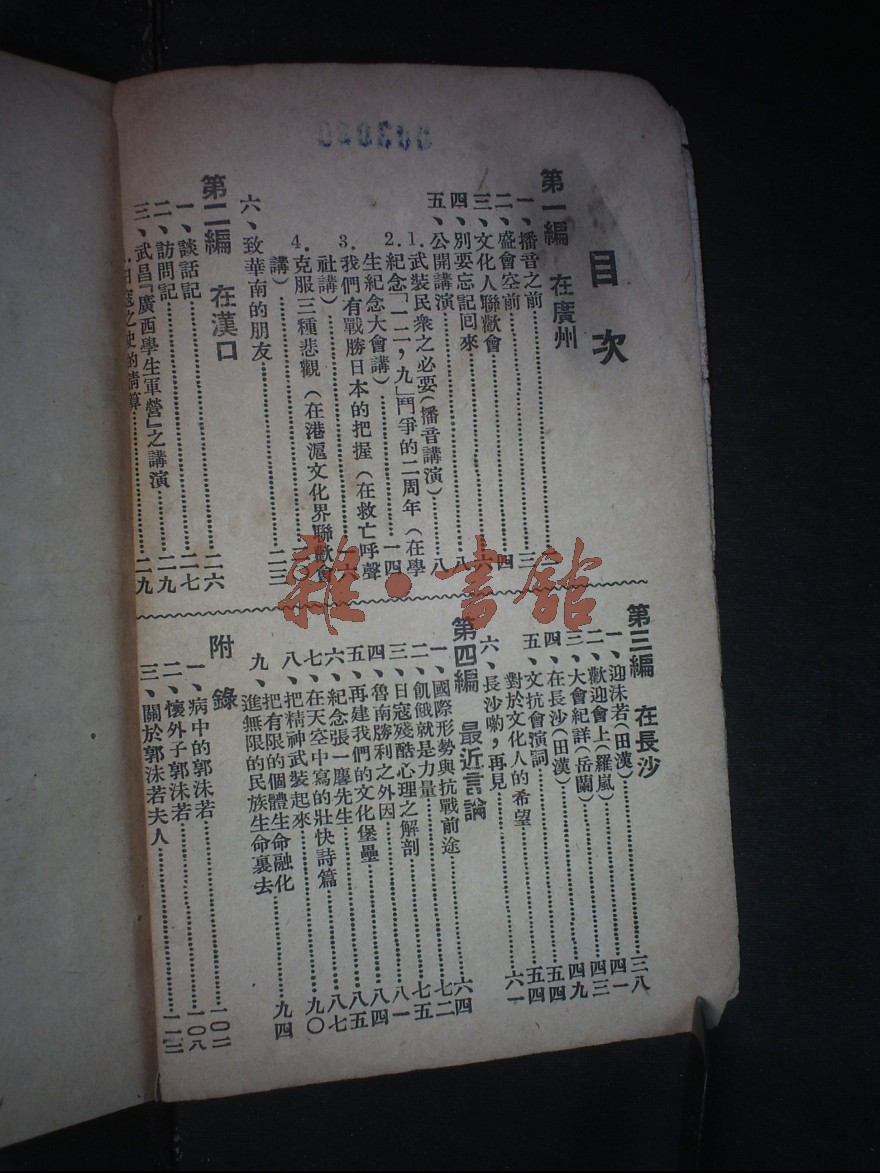 目次
第一編 在廣州
一、播音之前……二
二、盛會空前……三
三、文化人聯歡會……四
四、別要忘記回來……六
五、公開講演……八
1.武裝民衆之必要(播音講演)……八
2.紀念「一二,九」鬥爭的二周年(在學
生紀念大會講)……一四
3.我們有戰勝日本的把握(在救亡呼聲
社講)……一六
4.克服三種悲觀(在港滬文化界聯歡會
講)……
六、致華南的朋友……二三
第二編 在漢口
一、談話記……二六
二、訪問記……二七
三、武昌「廣西學生軍營」之講演……二九
1.日寇之史的清算……二九
第三編 在長沙
一、迎沫若(田漢)……三八
二、歡迎會上(羅嵐)……四一
三、大會紀詳(岳蘭)……四三
四、在長沙(田漢)……四九
五、文抗會演詞……五四
對於文化人的希望……五四
六、長沙喲,再見……六一
第四編 最近言論
一、國際形勢與抗戰前途……六四
二、飢餓就是力量……七二
三、日寇殘酷心理之解剖……七五
四、魯南勝利之外因……八一
五、再建我們的文化堡壘……八四
六、紀念張一麐先生……八五
七、在天空中寫的壯快詩篇……八七
八、把精神武裝起來……九〇
九、把有限的個體生命融化
進無限的民族生命裏去……九四
附錄
一、病中的郭沫若……一〇二
二、懷外子郭沫若……一〇八
三、關於郭沫若夫人……一一二
雜·書館